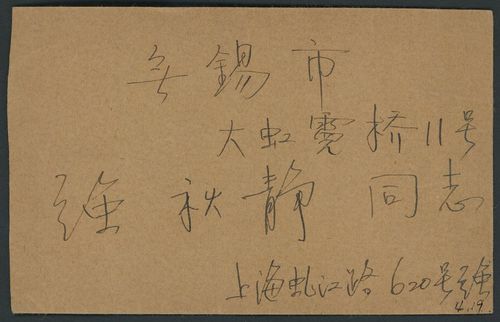 无锡市
大虹霓桥11号
强秋静同志
上海虬江路620号强
4.19.